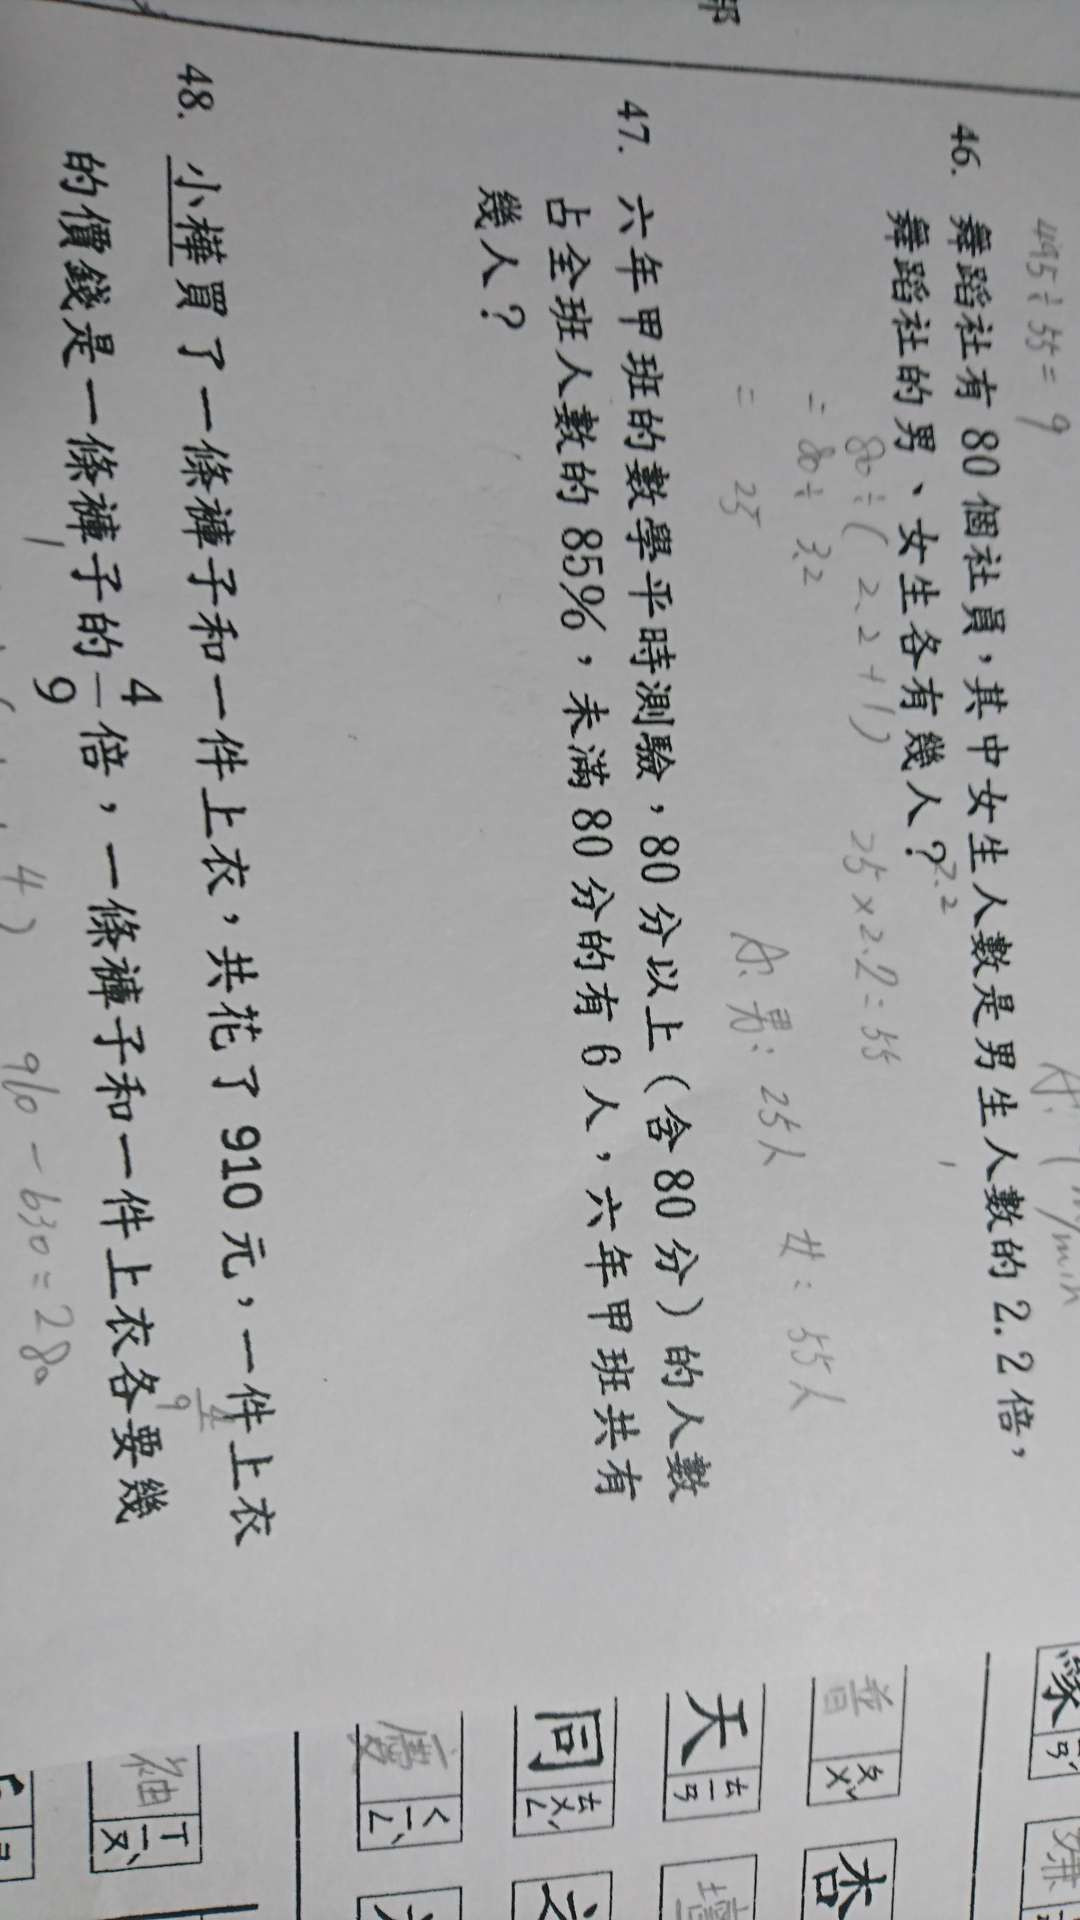 495÷55=9
46. 舞蹈社有 80 個社員，其中女生人數是男生人數的 2.2 倍，
舞蹈社的男、女生各有幾人？
2.2
80÷(2.2+1)
25×2.2=55
=80÷3.2
=25
A:男:25人 女:55人
47. 六年甲班的數學平時測驗，80 分以上（含 80 分）的人數
占全班人數的 85%，未滿 80 分的有 6 人，六年甲班共有
幾人？
48. 小樺買了一條褲子和一件上衣，共花了 910 元，一件上衣
的價錢是一條褲子的 4/9 倍，一條褲子和一件上衣各要幾
910-630=280
天 ㄊㄧㄢ
同 ㄊㄨㄥˊ
慶 ㄑㄧㄥˋ
袖 ㄒㄧㄡˋ
杏